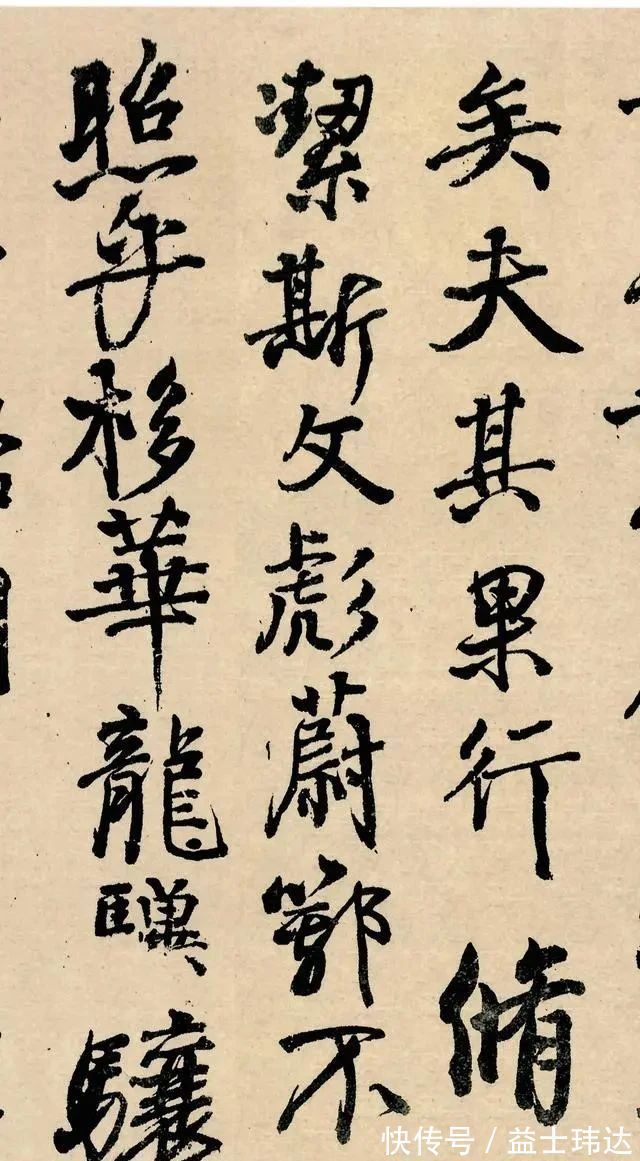 矣夫其果行脩
潔斯文彪蔚鄂不
照乎栘華龍驤
快传号/益士玮达